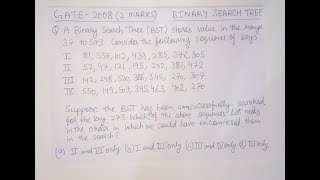 GATE-2008 (2 MARKS) BINARY SEARCH TREE
Q A Binary Search Tree (BST) stores value in the range
37 to 573. Consider the following sequence of keys
I 81, 537, 102, 439, 285, 376, 305
II 52, 97, 121, 195, 242, 381, 472
III 142, 248, 520, 386, 345, 270, 307
IV 550, 149, 507, 395, 463, 402, 270
Suppose the BST has been unsuccessfully searched
for the key 273. Which of the above sequences list nodes
in the order in which we could have encountered them
in the search?
(a) II and III only (b) I and III only (c) III and IV only (d) III only